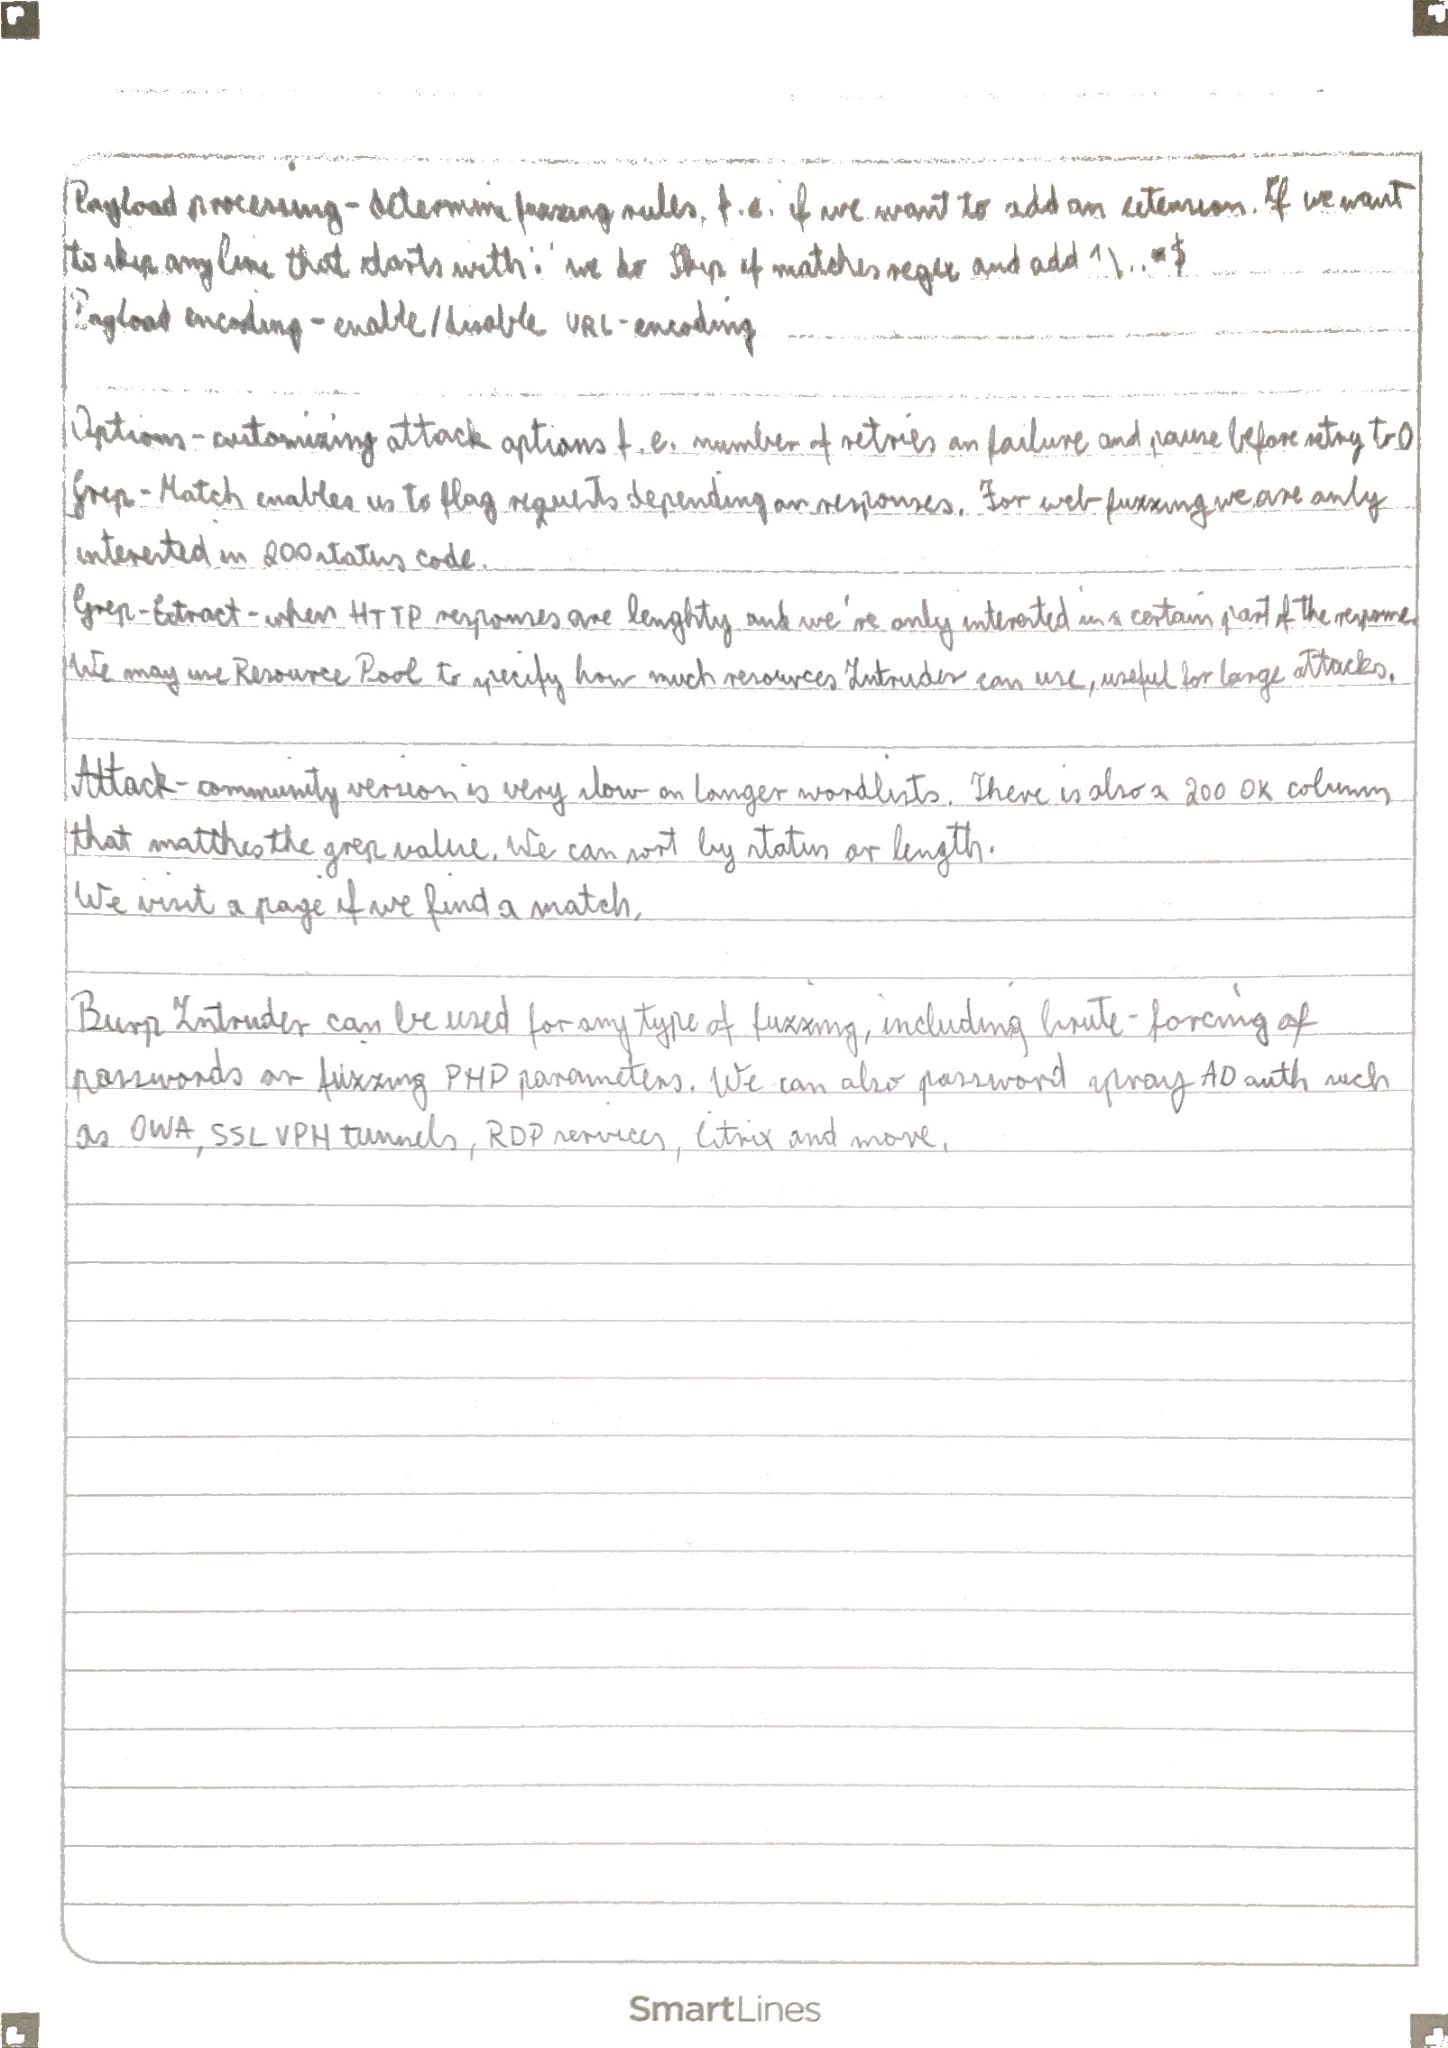 Payload processing - determine fuzzing rules, f.e. if we want to add an extension. If we want
to skip any line that starts with '.' we do Skip if matches regex and add ^\..*$
Payload encoding - enable/disable URL-encoding
Options - customizing attack options f.e. number of retries on failure and pause before retry to 0
Grep - Match enables us to flag requests depending on responses. For web fuzzing we are only
interested in 200 status code.
Grep - Extract - when HTTP responses are lenghty and we're only interested in a certain part of the response.
We may use Resource Pool to specify how much resources Intruder can use, useful for large attacks.
Attack - community version is very slow on longer wordlists. There is also a 200 OK column
that matches the grep value. We can sort by status or length.
We visit a page if we find a match.
Burp Intruder can be used for any type of fuzzing, including brute-forcing of
passwords or fuzzing PHP parameters. We can also password spray AD auth such
as OWA, SSL VPN tunnels, RDP services, Citrix and more.
SmartLines